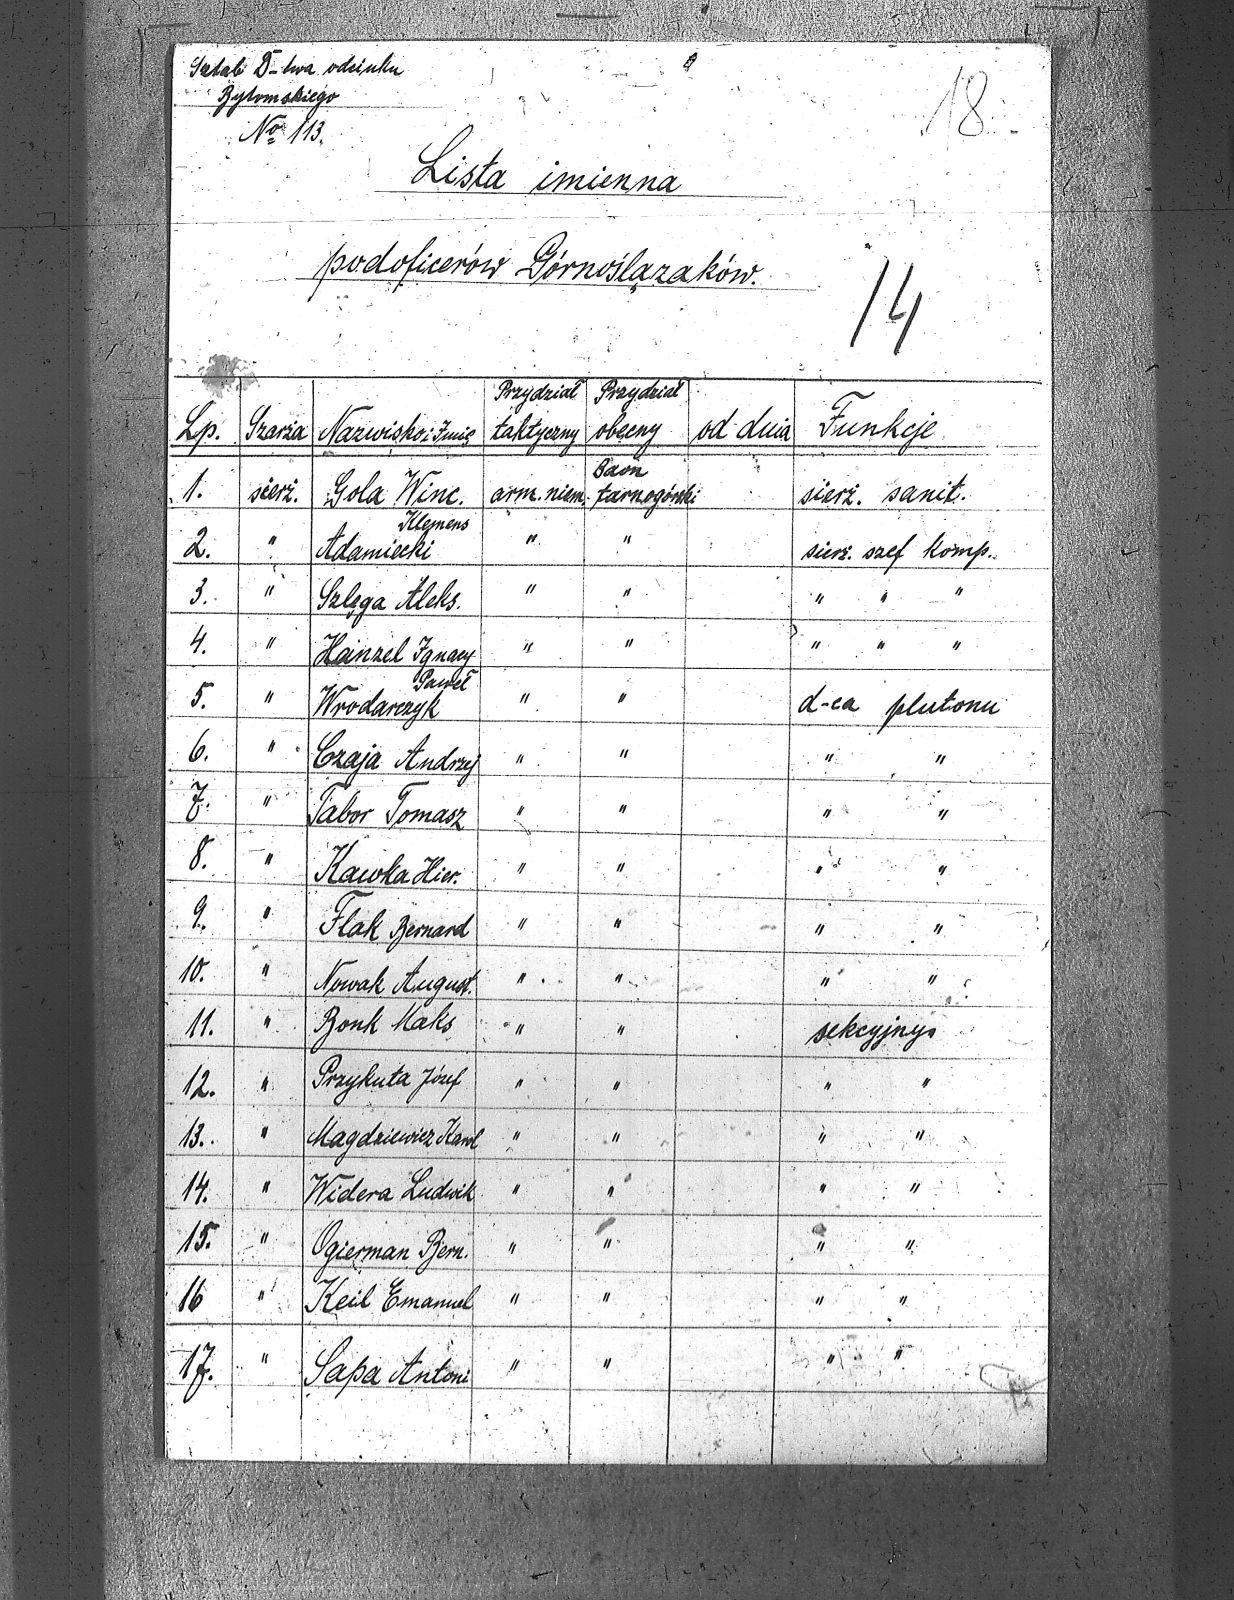 Sztab D-twa odcinku
Bytomskiego
No 113.
18.
Lista imienna
podoficerów Górnoślązaków.
14
Lp. Szarża Nazwisko i Imię Przydział taktyczny Przydział obecny od dnia Funkcje
1. sierż. Gola Winc. arm. niem. Baon tarnogórski sierż. sanit.
2. " Adamiecki Klemens " " sierż. szef komp.
3. " Szlęga Aleks. " " " " "
4. " Hainzel Ignacy " " " " "
5. " Wrodarczyk Paweł " " d-ca plutonu
6. " Czaja Andrzej " " " "
7. " Tabor Tomasz " " " "
8. " Kawka Hier. " " " "
9. " Flak Bernard " " " "
10. " Nowak August. " " " "
11. " Bonk Maks " " sekcyjny
12. " Przykuta Józef " " " "
13. " Magdziewicz Karol " " " "
14. " Widera Ludwik " " " "
15. " Ogierman Bern. " " " "
16 " Keil Emanuel " " " "
17. " Sapa Antoni " " " "